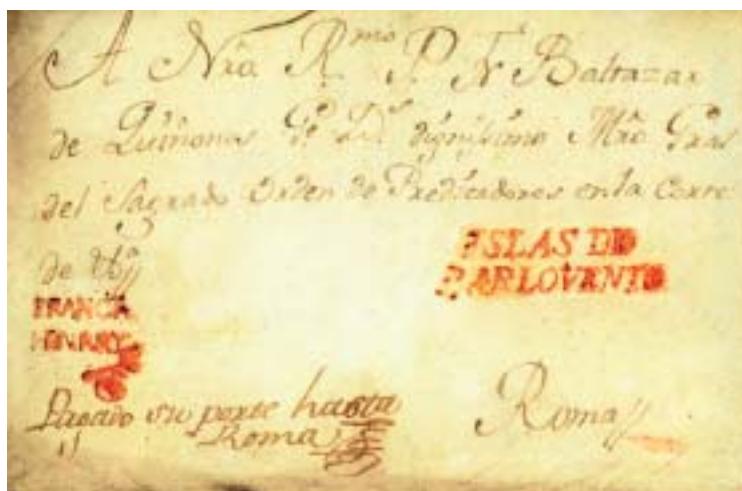 A Nro R.mo P. Fr Baltazar
de Quiñones Gs. dignissimo Mro Gral
del Sagrado Orden de Predicadores en la Corte
de
ISLAS DE
BARLOVENTO
FRANCA
Pagado su porte hasta
Roma
Roma